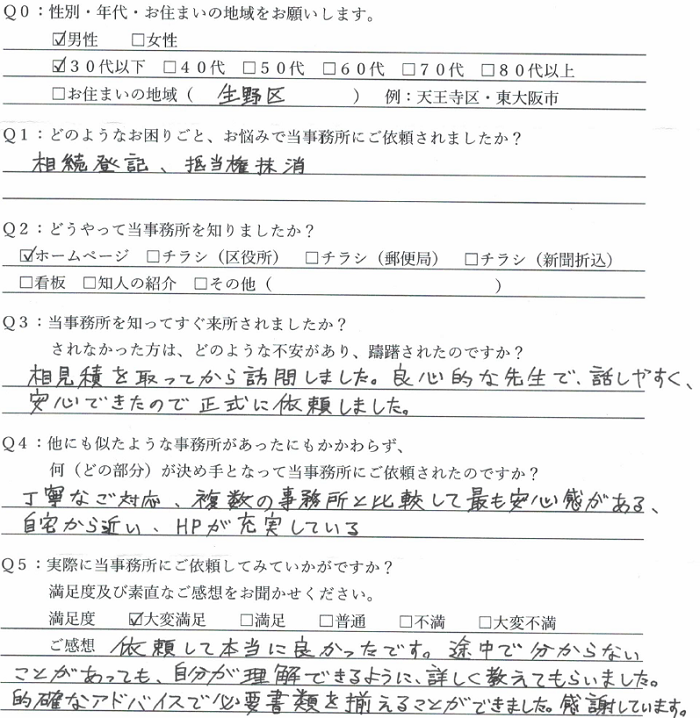 Q0：性別・年代・お住まいの地域をお願いします。
☑男性　□女性
☑30代以下　□40代　□50代　□60代　□70代　□80代以上
□お住まいの地域（　生野区　）　例：天王寺区・東大阪市
Q1：どのようなお困りごと、お悩みで当事務所にご依頼されましたか？
相続登記、抵当権抹消
Q2：どうやって当事務所を知りましたか？
☑ホームページ　□チラシ（区役所）　□チラシ（郵便局）　□チラシ（新聞折込）
□看板　□知人の紹介　□その他（　　　）
Q3：当事務所を知ってすぐ来所されましたか？
されなかった方は、どのような不安があり、躊躇されたのですか？
相見積を取ってから訪問しました。良心的な先生で、話しやすく、
安心できたので正式に依頼しました。
Q4：他にも似たような事務所があったにもかかわらず、
何（どの部分）が決め手となって当事務所にご依頼されたのですか？
丁寧なご対応、複数の事務所と比較して最も安心感がある、
自宅から近い、HPが充実している
Q5：実際に当事務所にご依頼してみていかがですか？
満足度及び素直なご感想をお聞かせください。
満足度　☑大変満足　□満足　□普通　□不満　□大変不満
ご感想　依頼して本当に良かったです。途中で分からない
ことがあっても、自分が理解できるように、詳しく教えてもらいました。
的確なアドバイスで必要書類を揃えることができました。感謝しています。